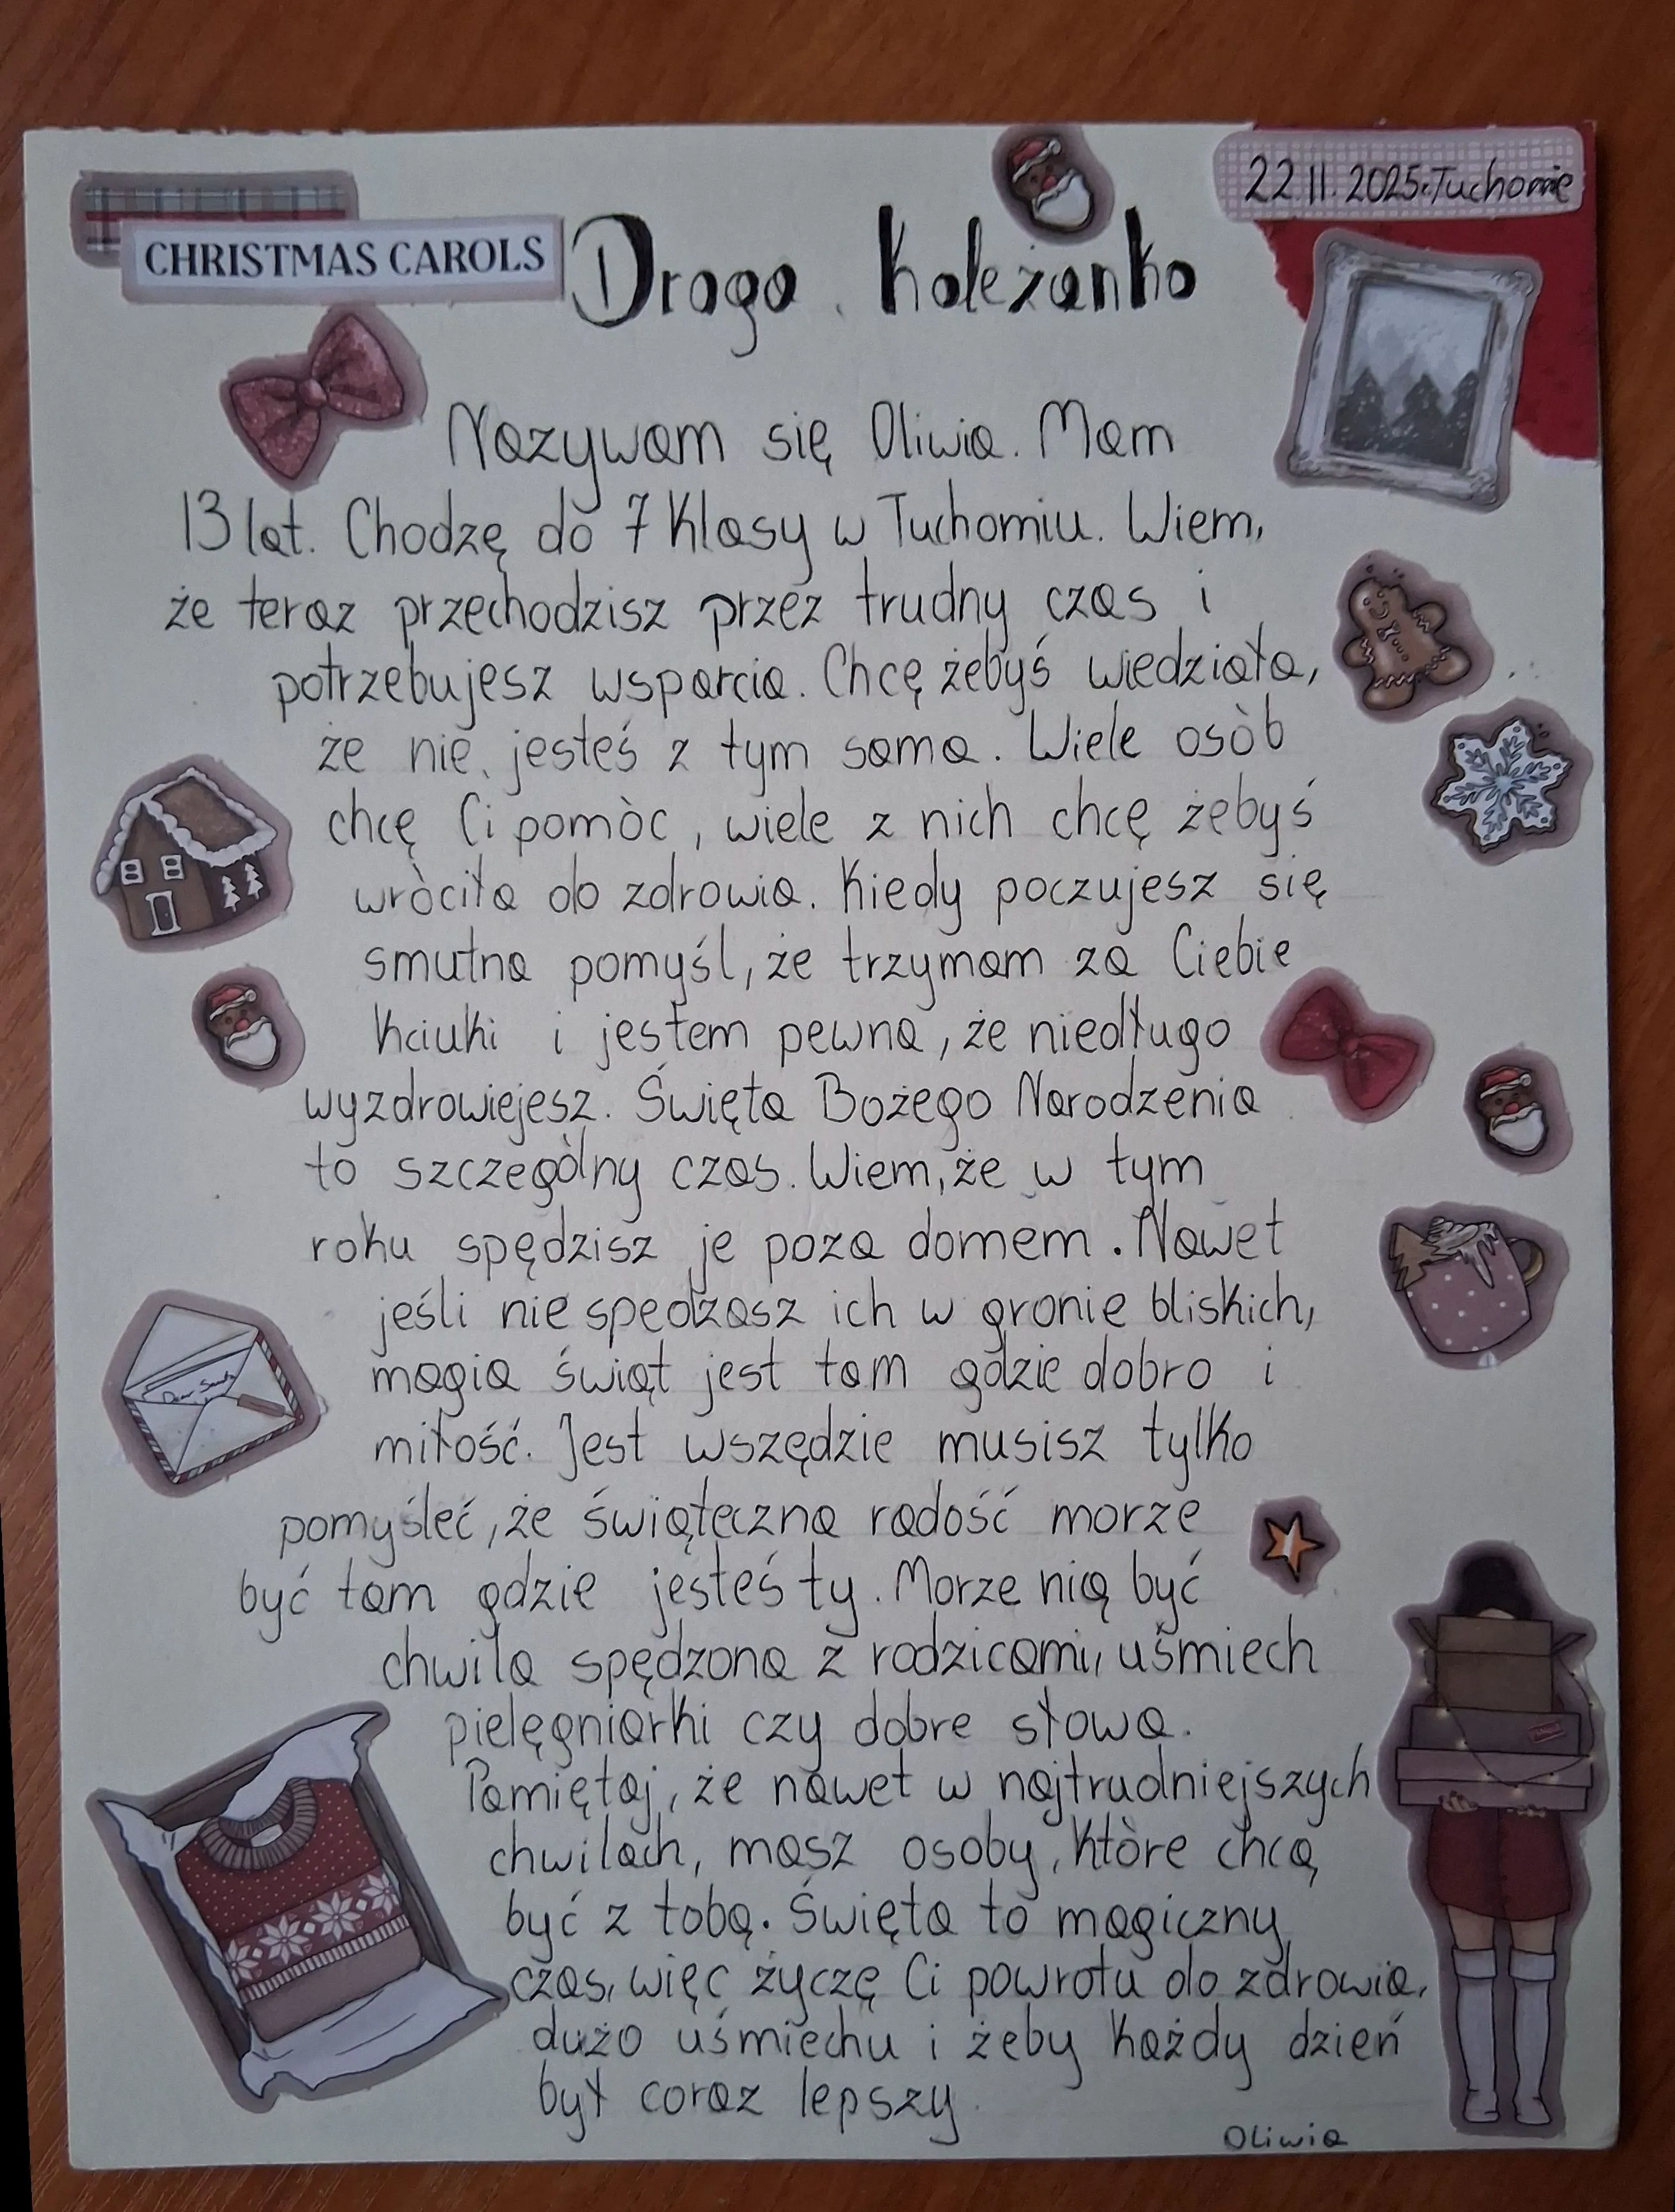 22.11.2025r.Tuchomie
CHRISTMAS CAROLS
Droga Koleżanko
Nazywam się Oliwia. Mam
13 lat. Chodzę do 7 klasy w Tuchomiu. Wiem,
że teraz przechodzisz przez trudny czas i
potrzebujesz wsparcia. Chcę żebyś wiedziała,
że nie jesteś z tym sama. Wiele osòb
chcę Ci pomòc, wiele z nich chcę żebyś
wròciła do zdrowia. Kiedy poczujesz się
smutna pomyśl, że trzymam za Ciebie
kciuki i jestem pewna, że niedługo
wyzdrowiejesz. Święta Bożego Narodzenia
to szczegòlny czas. Wiem, że w tym
roku spędzisz je poza domem. Nawet
jeśli nie spedzasz ich w gronie bliskich,
magia świąt jest tam gdzie dobro i
miłość. Jest wszędzie musisz tylko
pomyśleć, że świąteczna radość morze
być tam gdzie jesteś ty. Morze nią być
chwila spędzona z rodzicami, uśmiech
pielęgniarki czy dobre słowa.
Pamiętaj, że nawet w najtrudniejszych
chwilach, masz osoby, ktòre chcą
być z tobą. Święta to magiczny
czas, więc życzę Ci powrotu do zdrowia,
dużo uśmiechu i żeby każdy dzień
był coraz lepszy.
Oliwia